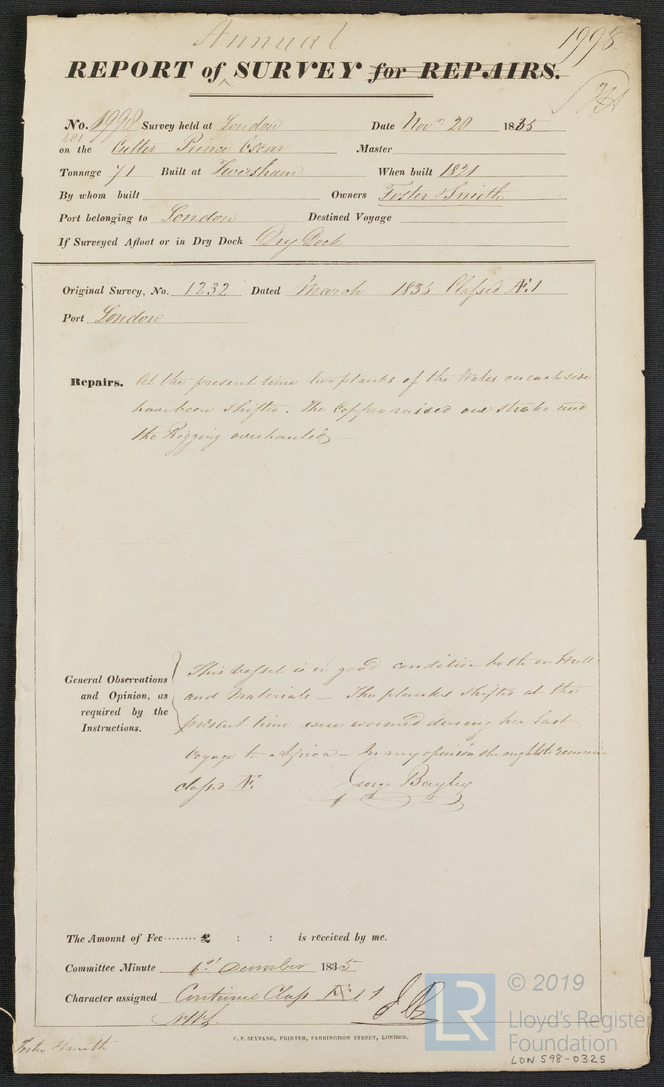 Annual
1998
REPORT of SURVEY for REPAIRS.
No. 1998 Survey held at London Date Novr 20 1835
on the Cutter Prince Oscar Master
Tonnage 71 Built at Feversham When built 1821
By whom built Owners Foster & Smith
Port belonging to London Destined Voyage
If Surveyed Afloat or in Dry Dock Dry Dock
Original Survey, No. 1232 Dated March 1835 Classed Æ1
Port London
Repairs. At the present time two planks of the Wales on each side
have been shifted. The Copper raised one strake and
the Rigging overhauled
General Observations and Opinion, as required by the Instructions.
This vessel is in good condition both in Hull
and Materials — The planks shifted at the
present time were wormed during her last
voyage to Africa — In my opinion she ought to remain
classed Æ. George Bayley
The Amount of Fee ........ £ : : is received by me.
Committee Minute 1st December 1835
Character assigned Continue Class Æ 1
C. F. SEYFANG, PRINTER, FARRINGDON STREET, LONDON.
Foster & Smith
LR
© 2019
Lloyd's Register
Foundation
LON 598-0325